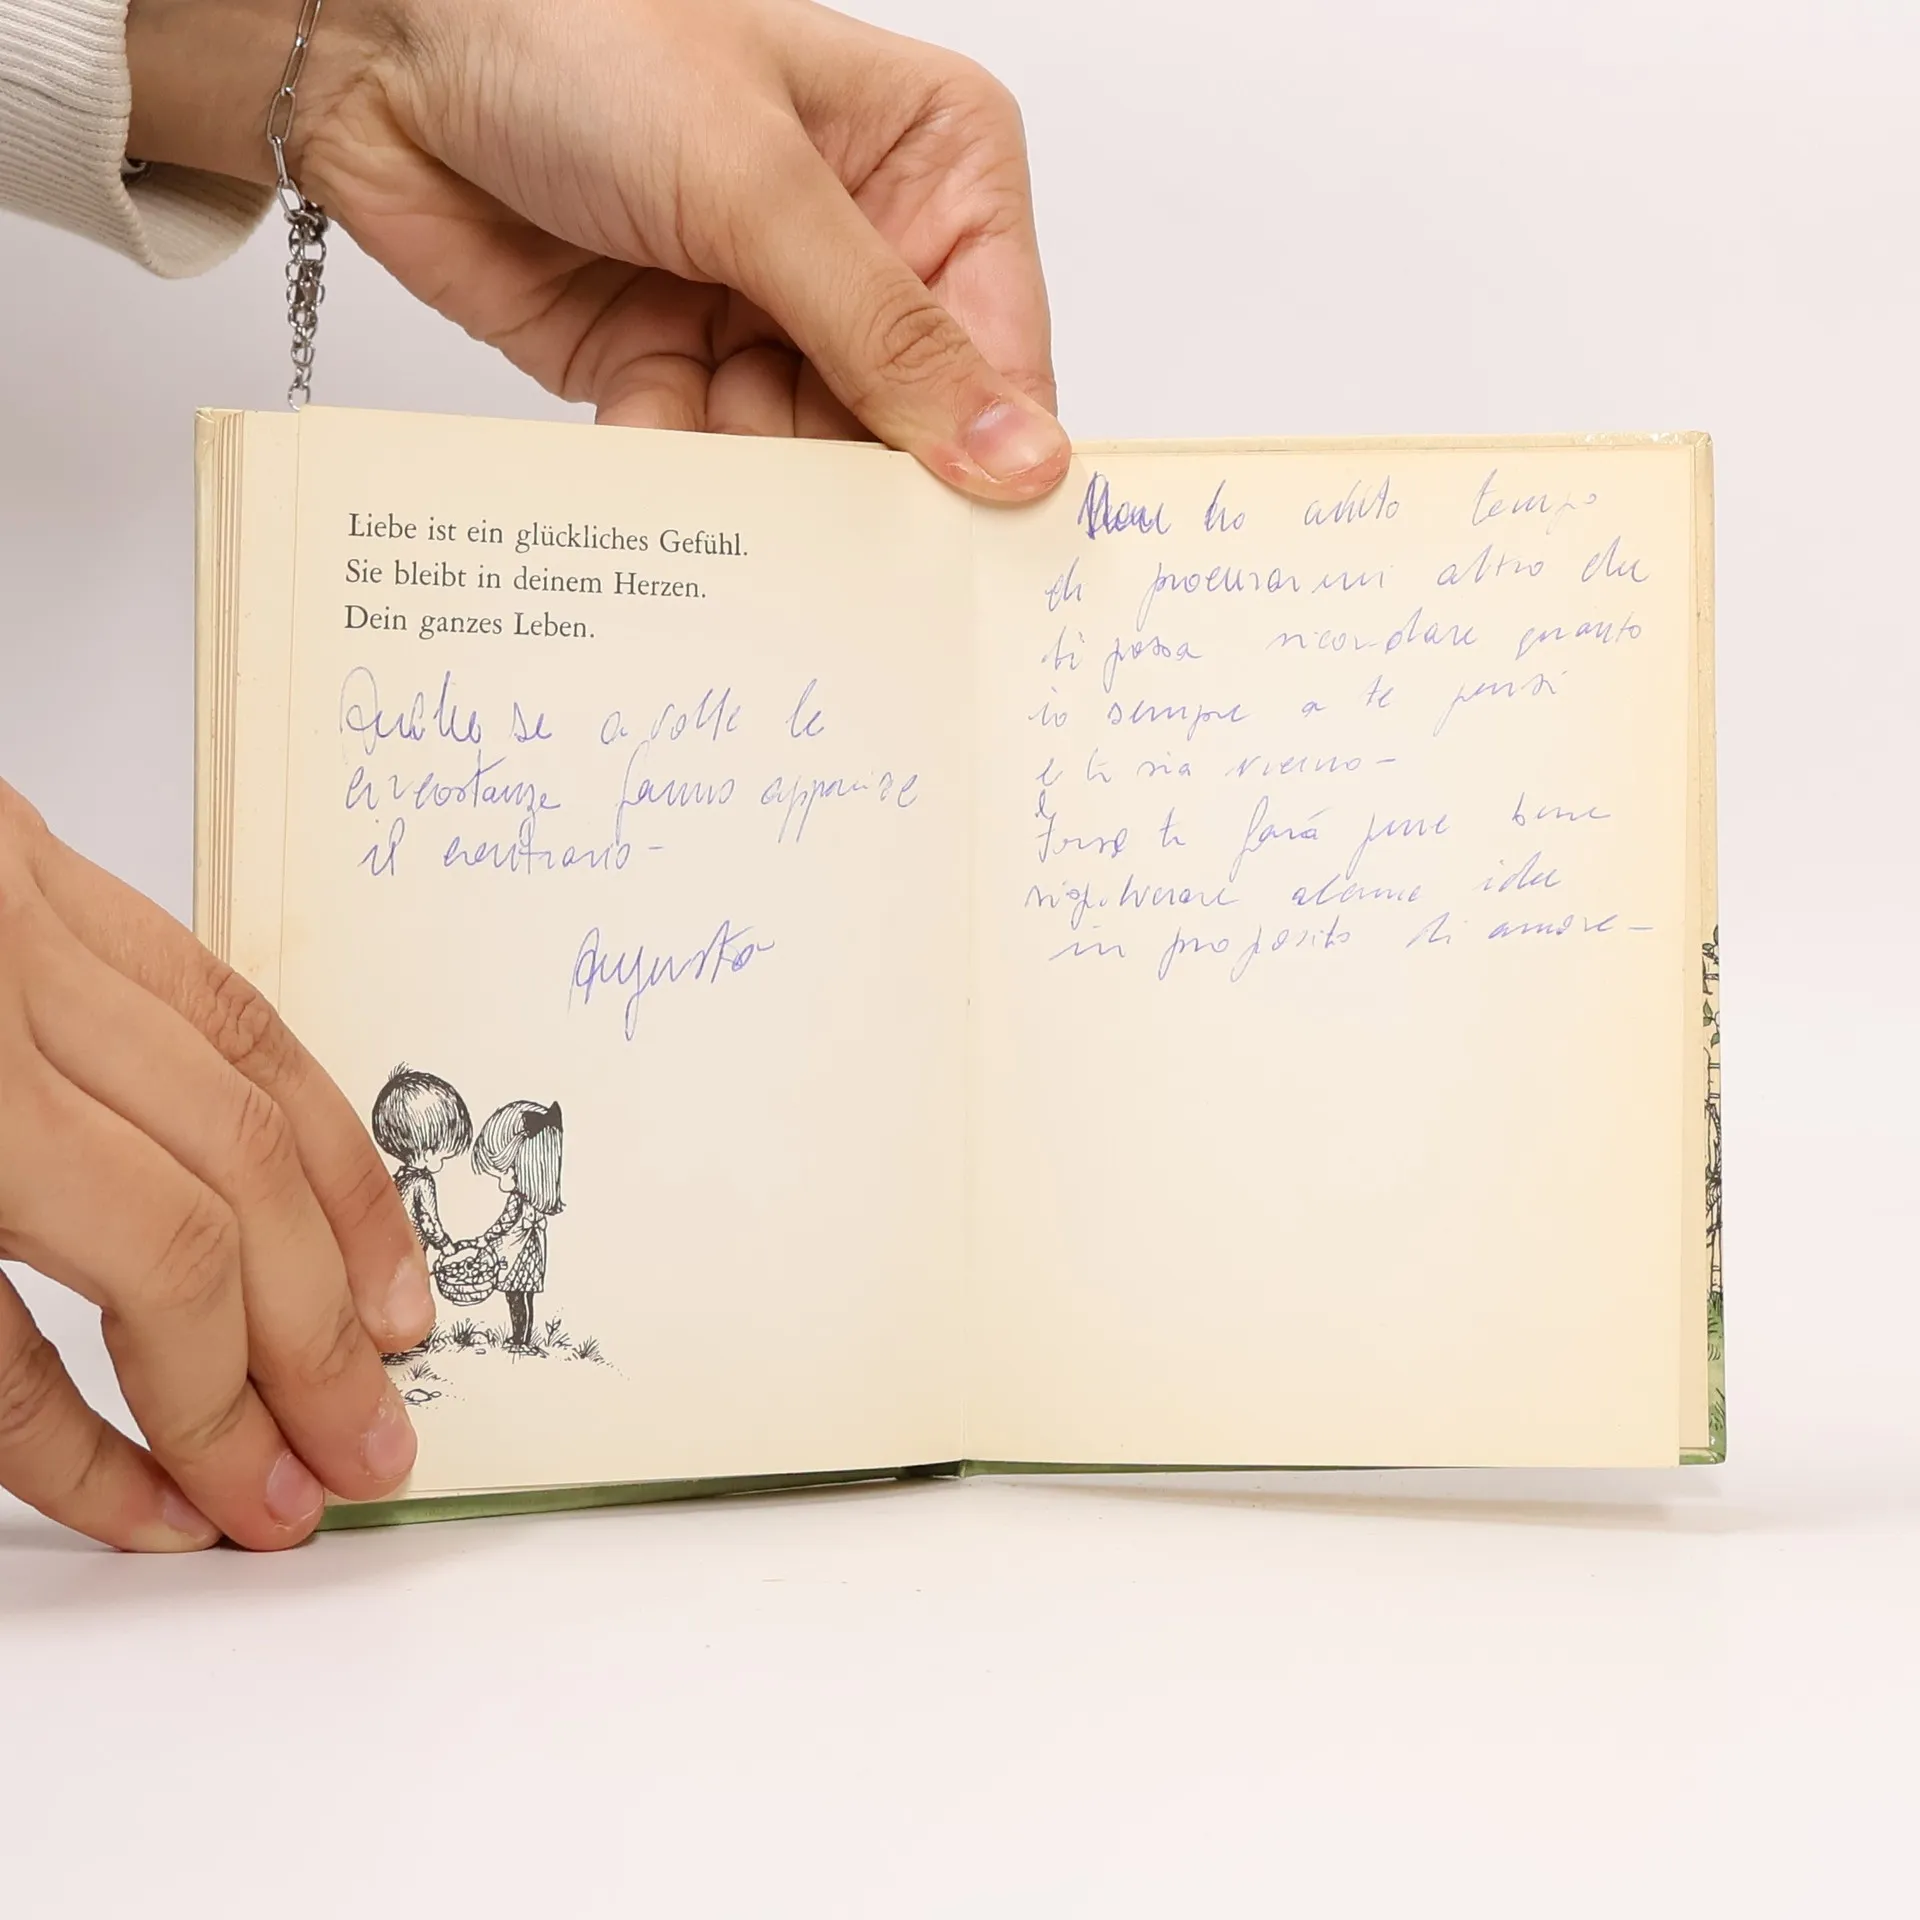 Liebe ist ein glückliches Gefühl.
Sie bleibt in deinem Herzen.
Dein ganzes Leben.
Anche se a volte le
circostanze fanno apparire
il contrario-
Augusta
Non ho avuto tempo
di procurarmi altro che
ti possa ricordare quanto
io sempre a te pensi
e ti sia vicino-
Forse ti farà pure bene
rispolverare alcune idee
in proposito di amore-